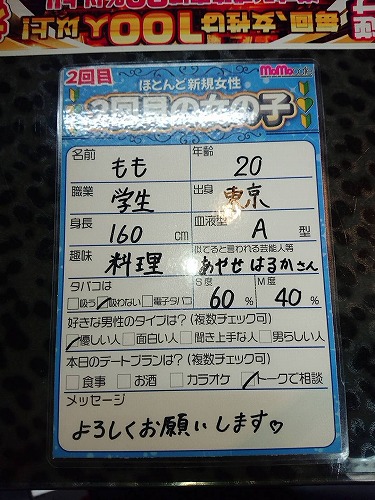 毎回、女性は100人以上!
2回目
ほとんど新規女性
MoMo cafe
2回目の女の子
名前 もも 年齢 20
職業 学生 出身 東京
身長 160 cm 血液型 A 型
趣味 料理 似てると言われる芸能人等 あやせはるかさん
タバコは S度 M度
吸う 吸わない 電子タバコ 60 % 40 %
好きな男性のタイプは?(複数チェック可)
優しい人 面白い人 聞き上手な人 男らしい人
本日のデートプランは?(複数チェック可)
食事 お酒 カラオケ トークで相談
メッセージ
よろしくお願いします♡